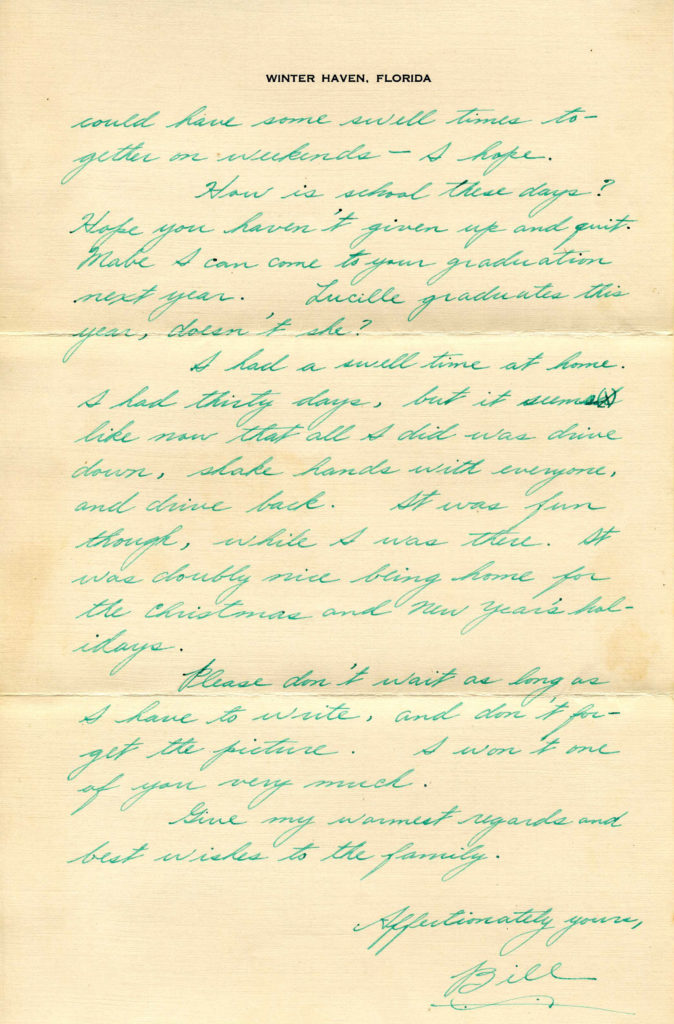 WINTER HAVEN, FLORIDA
could have some swell times to-
gether on weekends — I hope.
How is school these days?
Hope you haven't given up and quit.
Mabe I can come to your graduation
next year. Lucille graduates this
year, doesn't she?
I had a swell time at home.
I had thirty days, but it seems
like now that all I did was drive
down, shake hands with everyone,
and drive back. It was fun
though, while I was there. It
was doubly nice being home for
the Christmas and New Year's hol-
idays.
Please don't wait as long as
I have to write, and don't for-
get the picture. I won't one
of you very much.
Give my warmest regards and
best wishes to the family.
Affectionately yours,
Bill